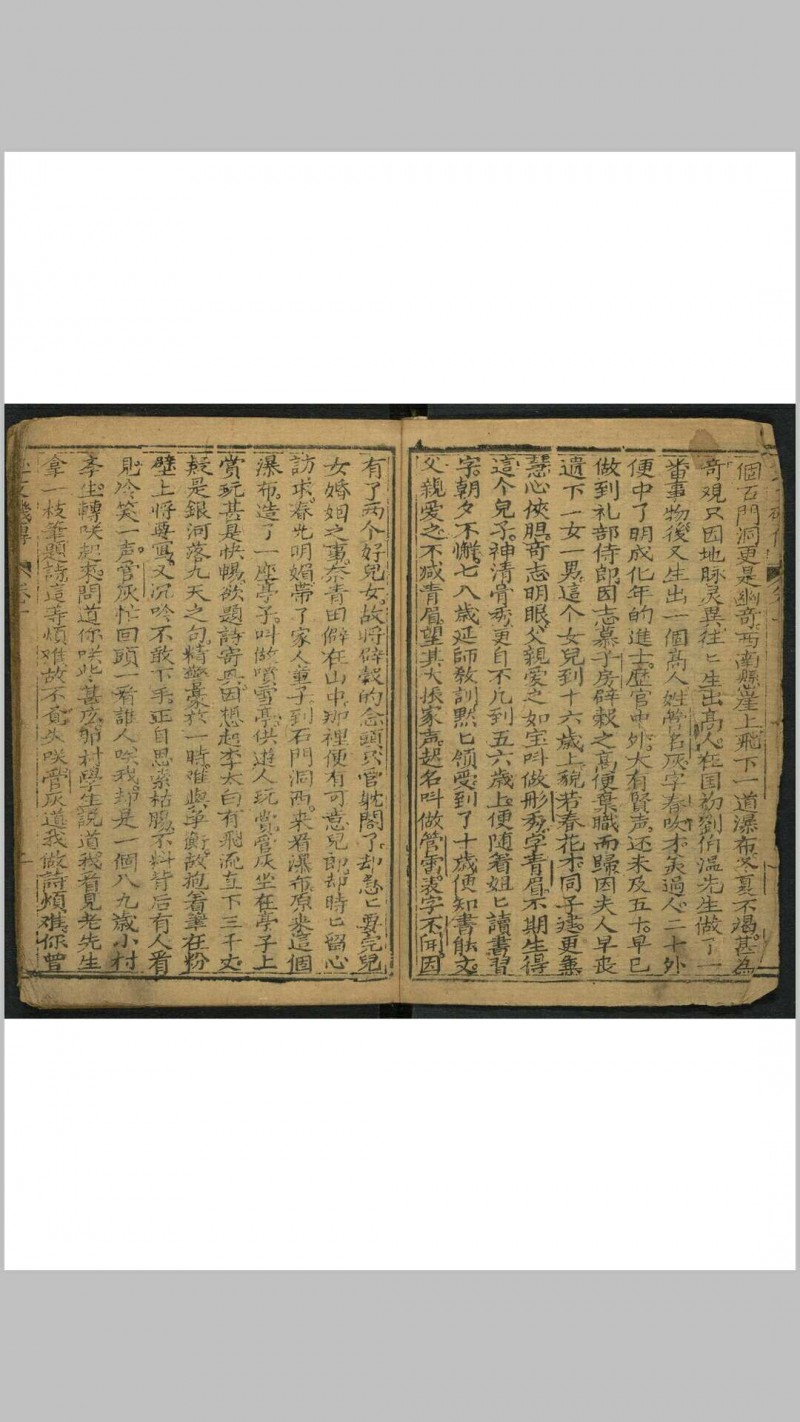 個石門洞更是幽奇。西南懸崖上飛下一道瀑布冬夏不竭。甚為
奇観只因地脉灵異。往匕生出高人。在国初劉伯温先生做了一
畨事物後又生出一個高人姓管名灰字春吹。才矣過人。二十外
便中了明成化年的進士。歷官中外。大有賢声。还未及五十。早已
做到礼部侍郎。因志慕子房辟榖之高便棄職而歸因夫人早丧
遺下一女一男。這个女兒到十六歲上。貌若春花。才同子建。更兼
慧心俠胆。奇志明眼。父親爱之如宝叫做彤秀。字青眉。不期生得
這个兒子。神清骨秀。更自不凡。到五六歲上。便随着姐匕讀書習
字。朝夕不懈。七八歲延師敎訓。黙匕領受。到了十歲便知書能文。
父親愛之。不减青眉。望其大振家声。起名叫做管雷。表字不聞。因
有了两个好兒女。故将辟榖的念頭。只官躭閣了。却急匕要完兒
女婚姻之事。奈青田僻在山中。那裡便有可意兒郎。却時匕留心
訪求。春光明媚。帶了家人童子。到石門洞西。来看瀑布。原来這個
瀑布。造了一座亭子。叫做噴雪亭。供遊人玩賞。管灰坐在亭子上
賞玩甚是快暢。欲題詩寄興。因想起李太白有飛流直下三千丈
疑是銀河落九天之句。精警豪放一時难與争衡。故抱着筆在粉
壁上将要寫。又沉吟不敢下手。正自思索枯腸。不料背后有人看
見冷笑一声。管灰忙回頭一看誰人咲我。却是一個八九歲小村
李生。轉咲起來。問道你咲些甚庅。那村學生説道我看見老先生
拿一枝筆題詩。這等煩难。故不覓失咲。管灰道我做詩煩难。你曾